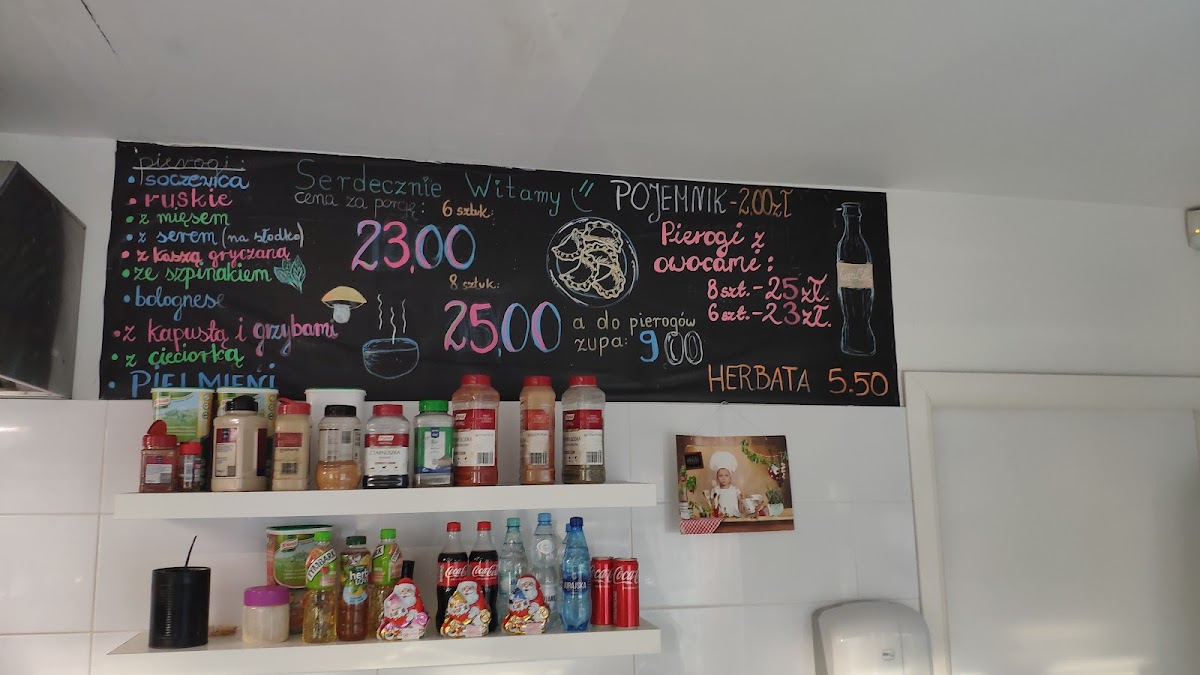 pierogi:
• soczewica
• ruskie
• z mięsem
• z serem (na słodko)
• z kaszą gryczaną
• ze szpinakiem
• bolognese
• z kapustą i grzybami
• z cieciorką
• PIELMIENI
Serdecznie Witamy
cena za porcję: 6 sztuk:
23,00
8 sztuk:
25,00
a do pierogów
zupa: 9,00
POJEMNIK - 2,00 zł
Pierogi z
owocami:
8 szt. - 25 zł.
6 szt. - 23 zł.
HERBATA 5.50
Knorr
CZARNUSZKA
Knorr
TYMBARK
Coca-Cola
Coca-Cola
Coca-Cola
Coca-Cola